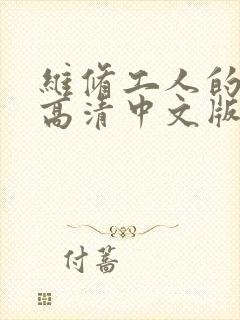 維脩工人的
高清中文版
付蒿